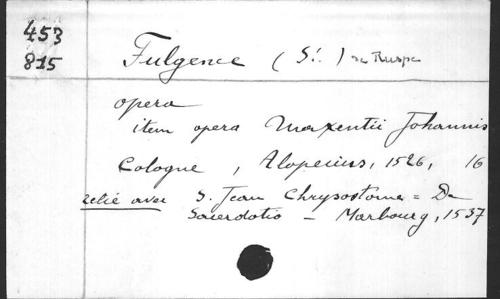 453
815
Fulgence (St.) de Ruspe
opera
item opera Maxentii Johannis
Cologne, Alopecius, 1526, 16
relié avec S. Jean Chrysostome = De
Sacerdotio - Marbourg, 1537